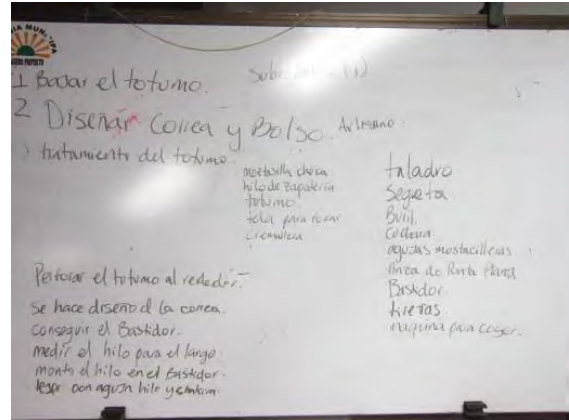 1 Bajar el totumo.
2 Diseñar Correa y Bolso. Artesano.
tratamiento del totumo.
mostasilla checa
hilo de zapateria
totumo
tela para forrar
cremallera
taladro
Segueta
Buril
Cuchara
agujas mostacilleras
Pinza de Punta Plana
Bastidor
tijeras
maquina para coser.
Perforar el totumo al rededor.
se hace diseño d la correa.
conseguir el Bastidor.
medir el hilo para el largo.
monto el hilo en el Bastidor.
tejer con aguja hilo y